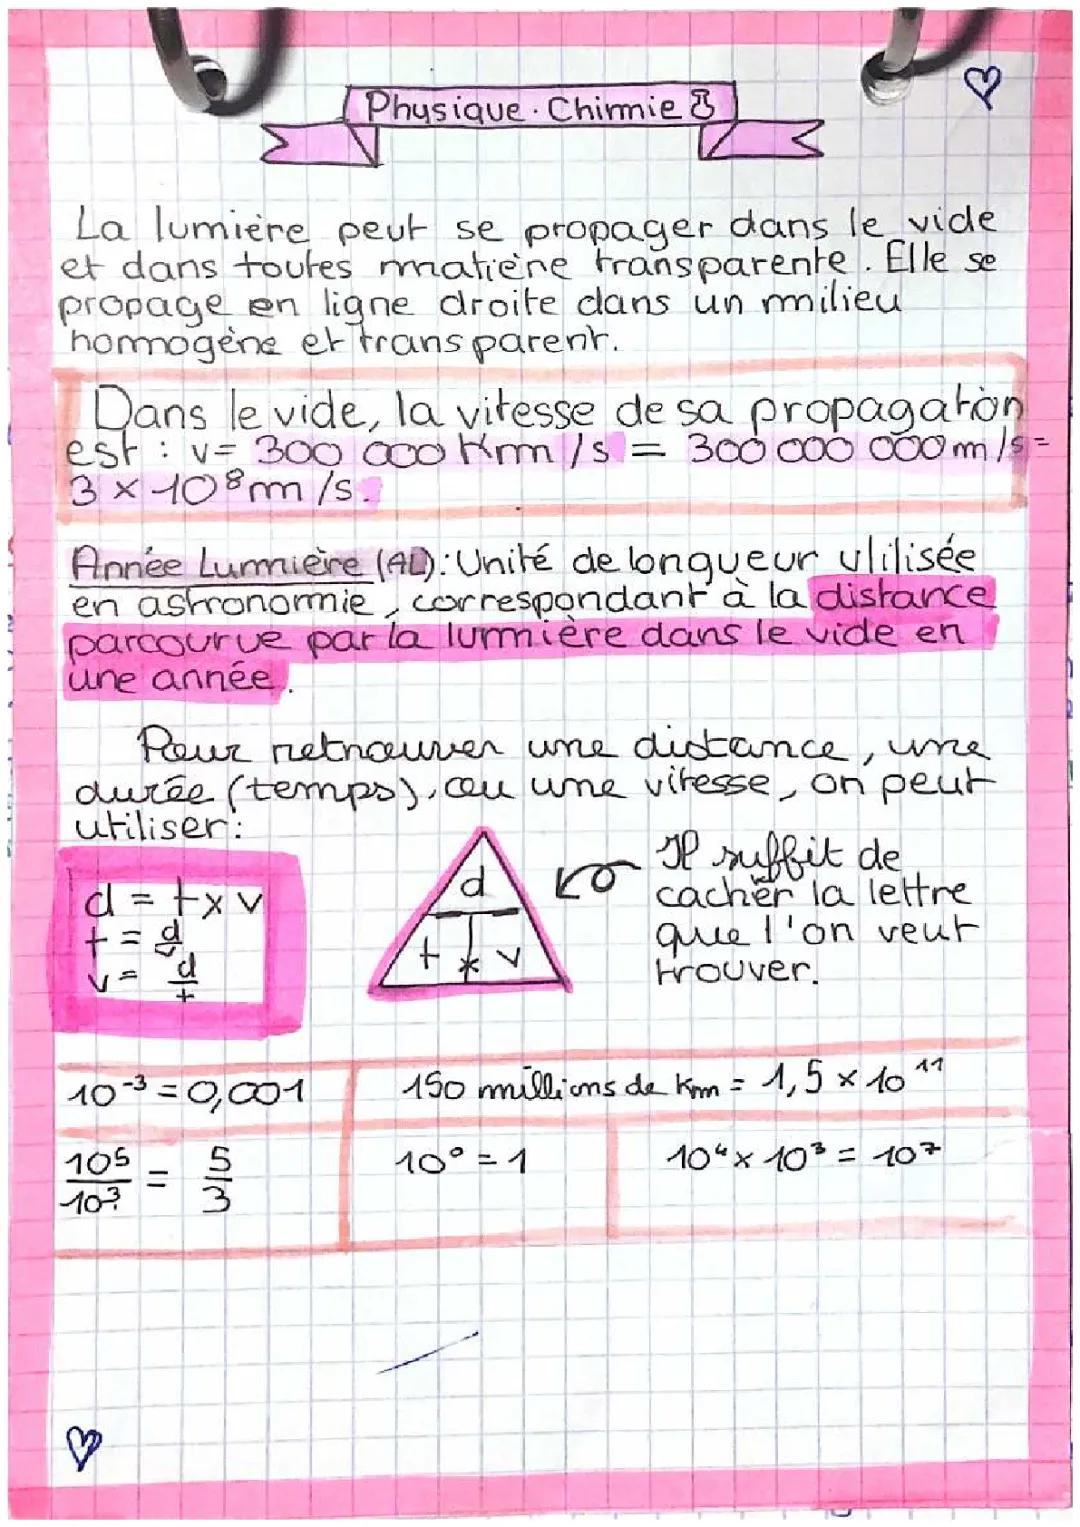 Physique · Chimie
La lumière peut se propager dans le vide
et dans toutes matière transparente. Elle se
propage en ligne droite dans un milieu
homogène et transparent.
Dans le vide, la vitesse de sa propagation
est : v= 300 000 Km/s = 300 000 000 m/s =
3 × 10⁸ m/s.
Année Lumière (AL): Unité de longueur utilisée
en astronomie, correspondant à la distance
parcourue par la lumière dans le vide en
une année.
Pour retrouver une distance, une
durée (temps), ou une vitesse, on peut
utiliser:
d = t x v
t = d/v
v = d/t
d
t * v
Il suffit de
cacher la lettre
que l'on veut
trouver.
10⁻³ = 0,001
150 millions de Km = 1,5 × 10¹¹
10⁵/10³ = 5/3
10⁰ = 1
10⁴ x 10³ = 10⁷